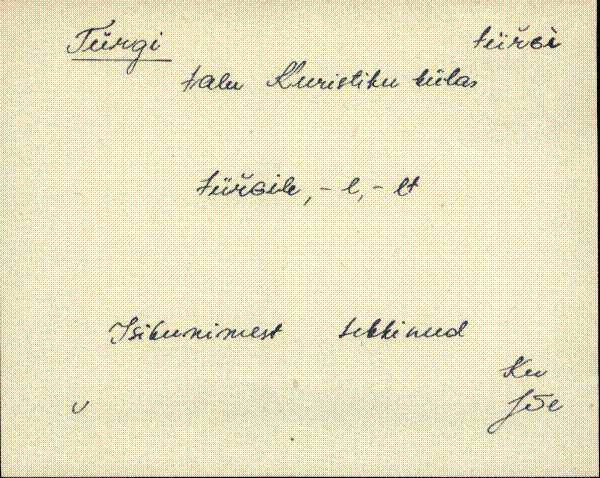 Türgi türɢi
talu Kuristiku külas
türɢile, - l, - lt
Isikunimest tekkinud
Ku
Jõe
v